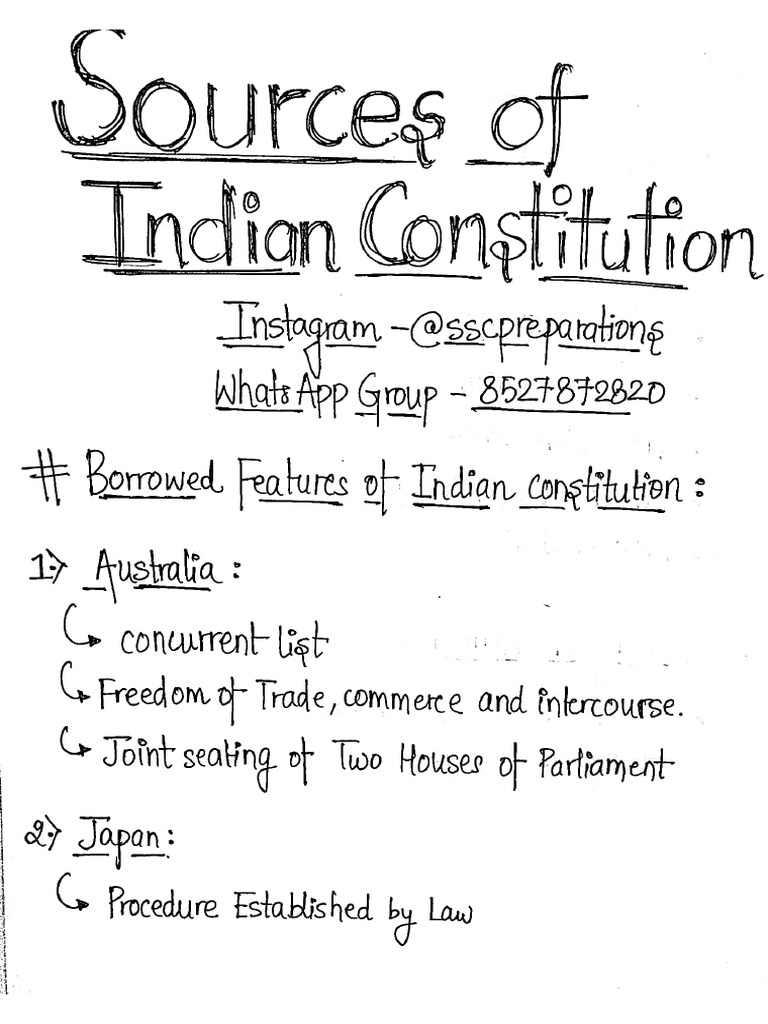 Sources of
Indian Constitution
Instagram - @sscpreparations
WhatsApp Group - 8527872820
# Borrowed Features of Indian constitution :
1:> Australia :
↳ concurrent list
↳ Freedom of Trade, commerce and intercourse.
↳ Joint seating of Two Houses of Parliament
2:> Japan :
↳ Procedure Established by Law